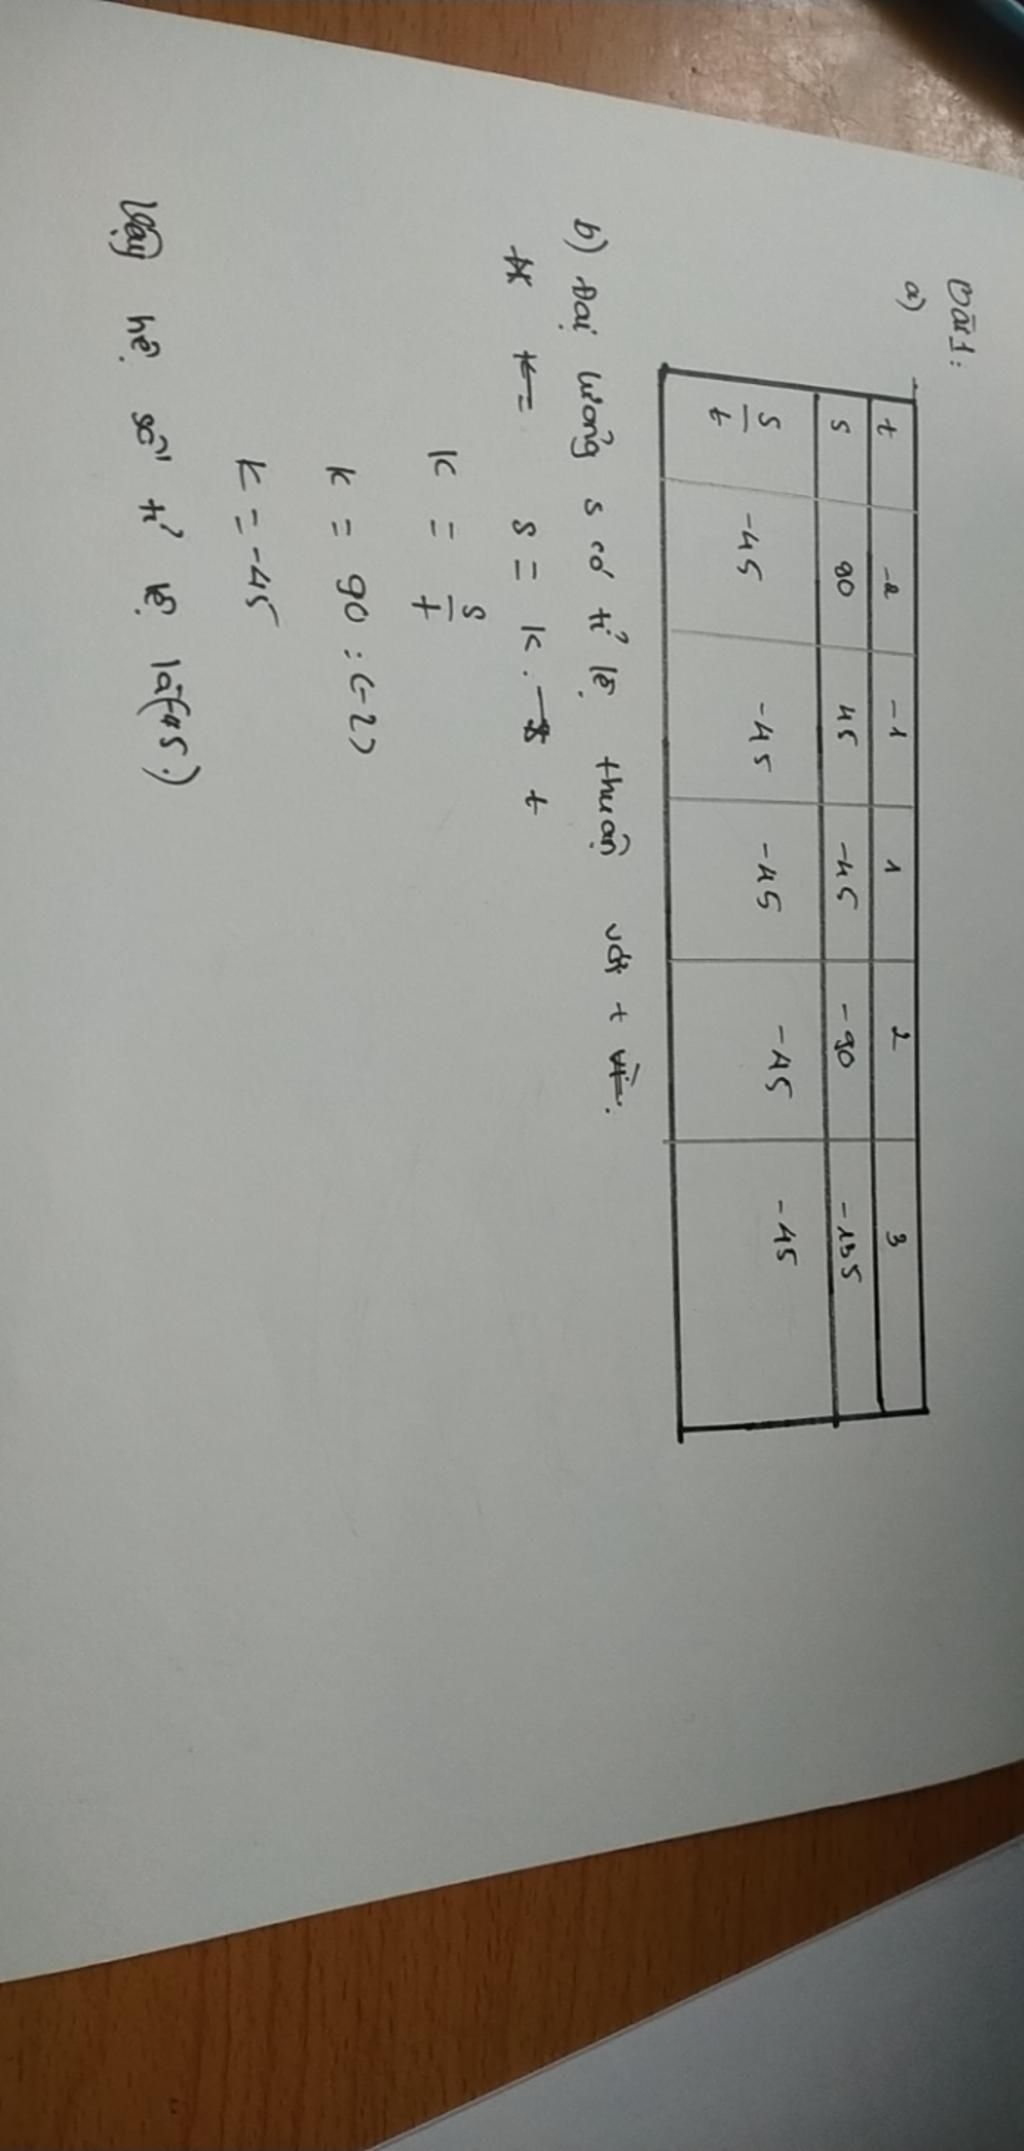 Bài 1:
a)
t -2 -1 1 2 3
s 90 45 -45 -90 -135
s/t -45 -45 -45 -45 -45
b) Đại lượng s có tỉ lệ thuận với t
s = k. t
k = s/t
k = 90 : (-2)
k = -45
Vậy hệ số tỉ lệ là (-45.)